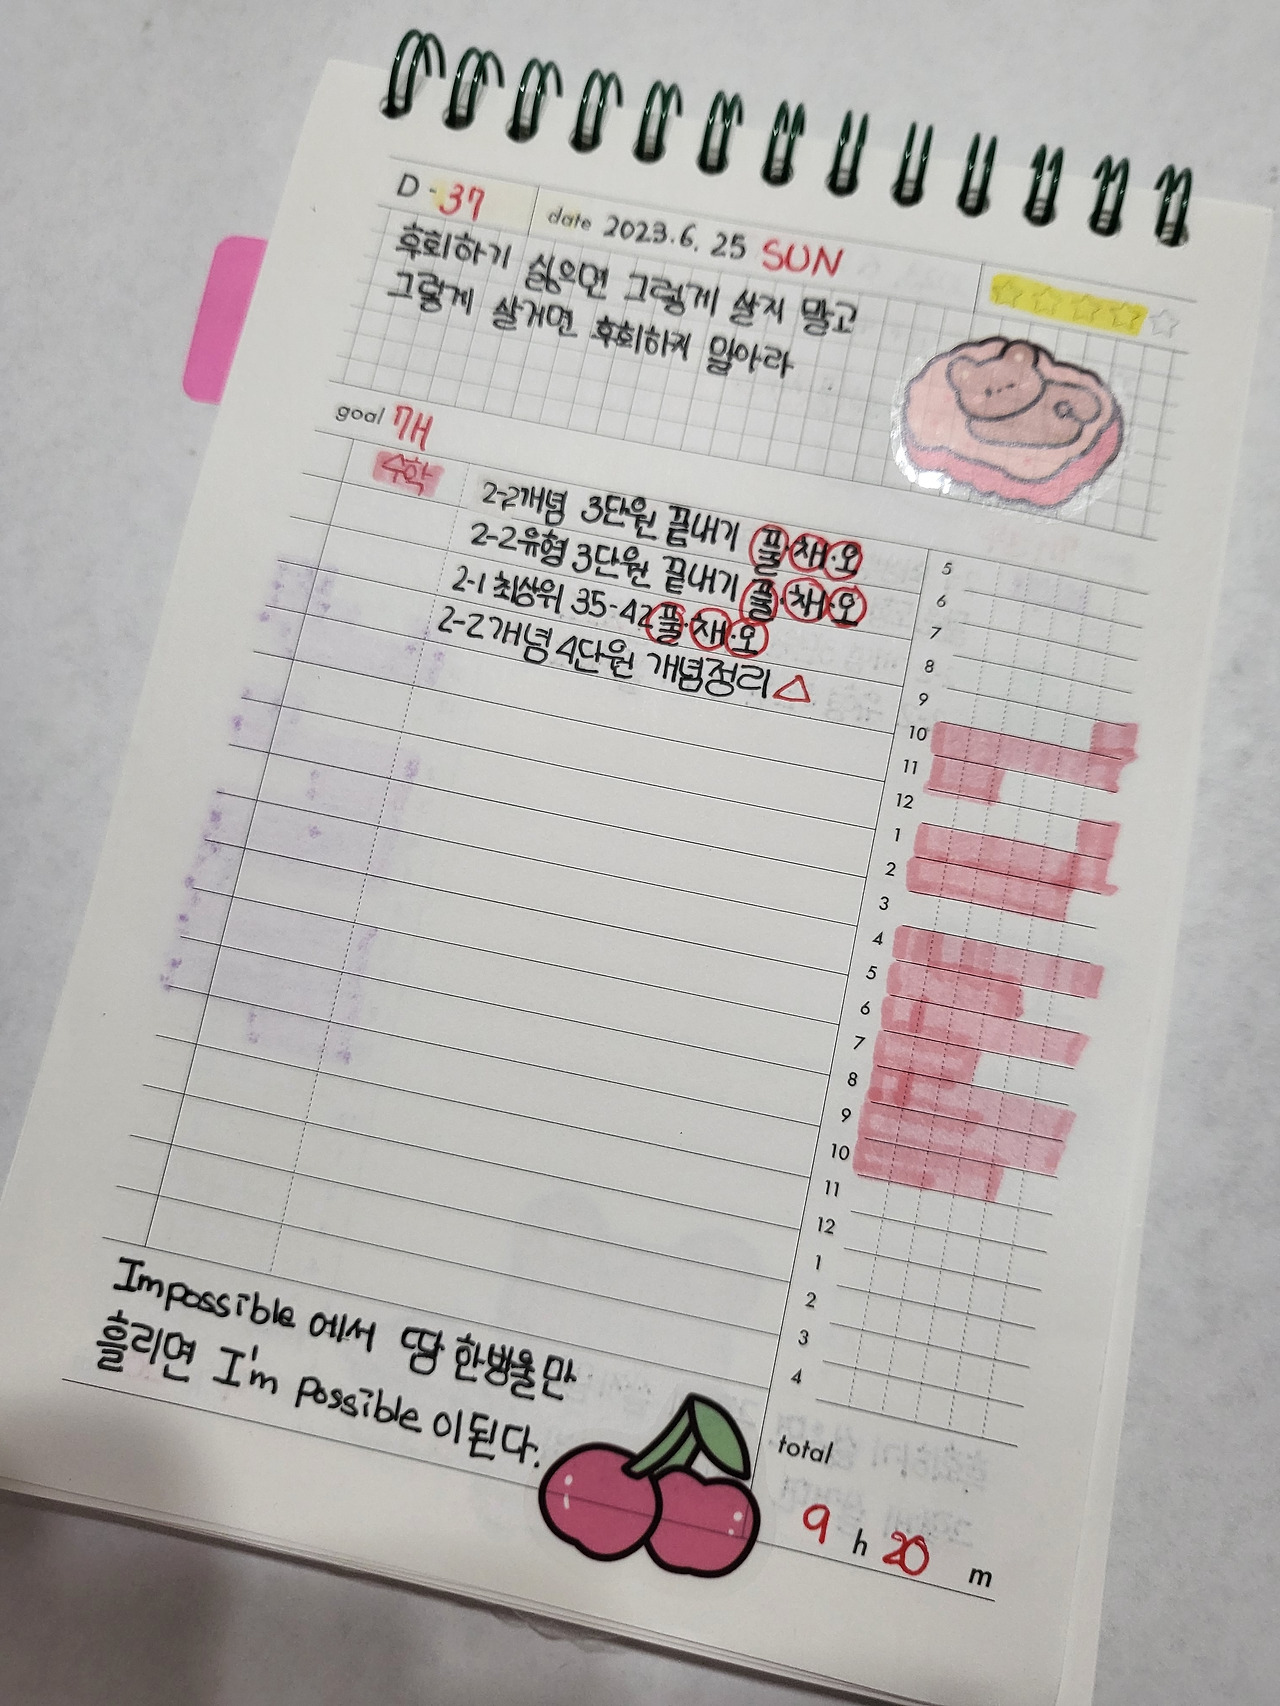 D - 37
date 2023.6.25 SUN
후회하기 싫으면 그렇게 살지 말고
그렇게 살거면 후회하지 말아라
goal 7H
수학
2-2개념 3단원 끝내기 풀·채·오
2-2유형 3단원 끝내기 풀·채·오
2-1 최상위 35-42 풀·채·오
2-2개념 4단원 개념정리 △
5
6
7
8
9
10
11
12
1
2
3
4
5
6
7
8
9
10
11
12
1
2
3
4
Impossible 에서 땀 한방울만
흘리면 I'm possible 이 된다.
total
9 h 20 m